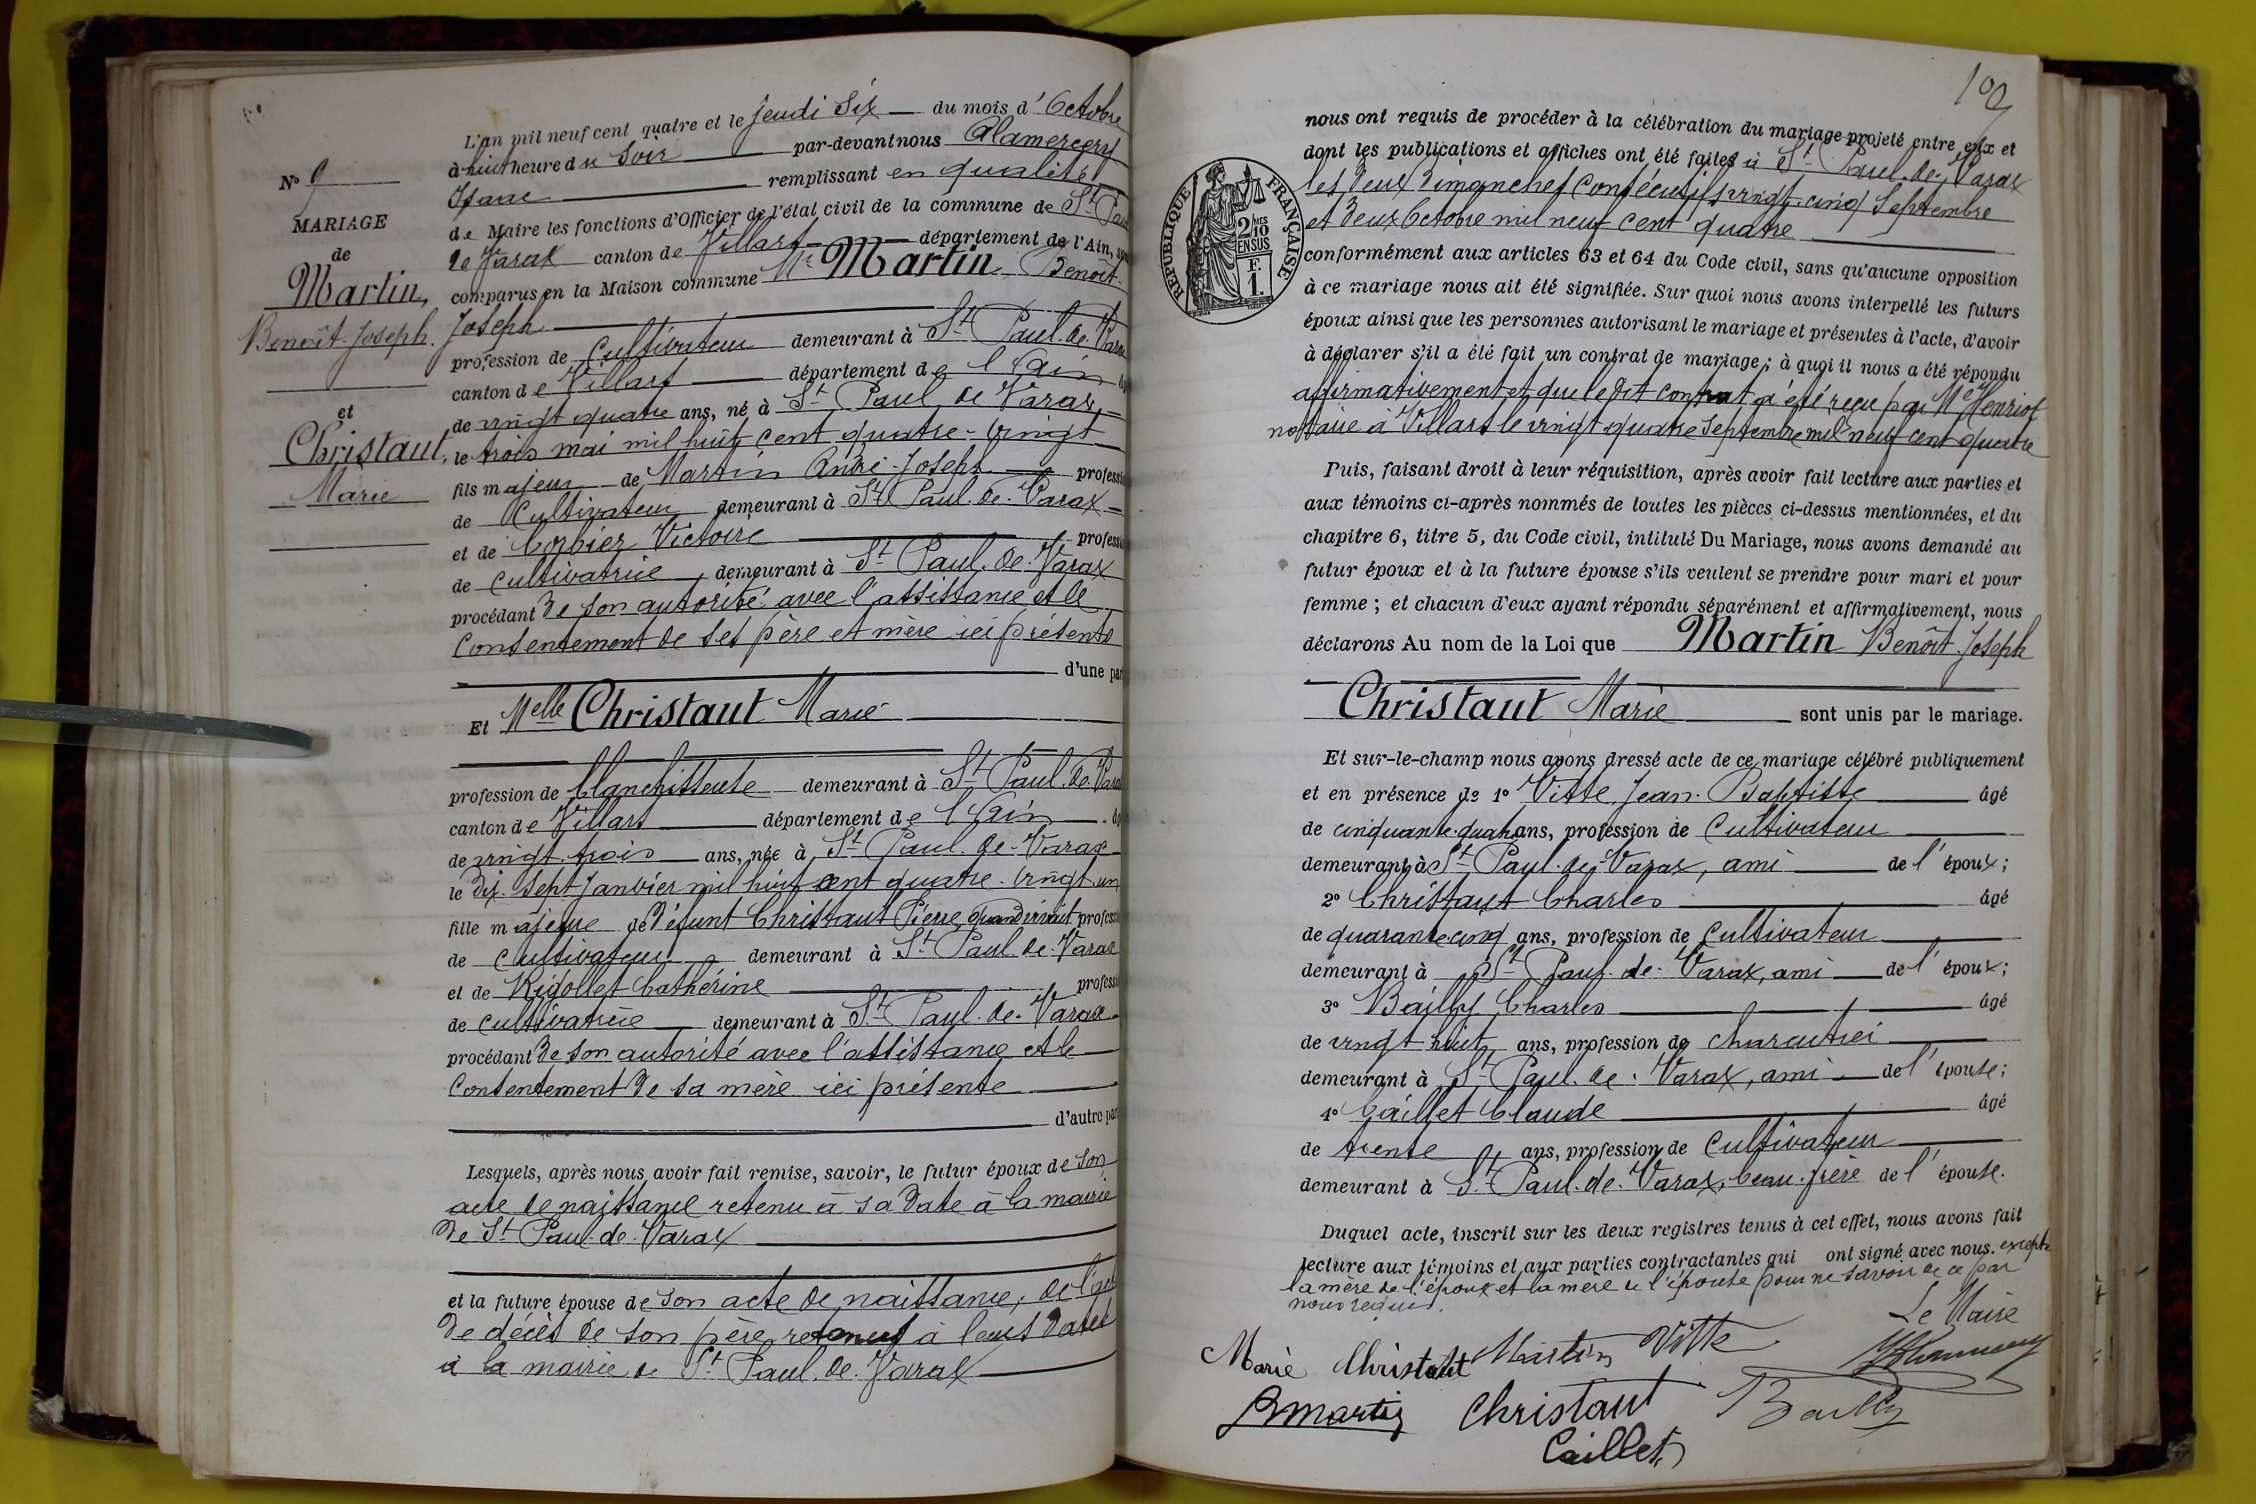 N° 9
MARIAGE
de
Martin,
Benoît-Joseph.
et
Christaut,
Marie
L'an mil neuf cent quatre et le Jeudi Six du mois d'Octobre
à huit heure du Soir par-devant nous Alamercery
Isaac remplissant en qualité
de Maire les fonctions d'Officier de l'état civil de la commune de St Paul
de Varax canton de Villars département de l'Ain, son
comparus en la Maison commune Mr Martin Benoît-
Joseph
profession de Cultivateur demeurant à St Paul-de-Varax
canton de Villars département de l'Ain âg
de vingt quatre ans, né à St Paul de Varax,
le trois mai mil huit cent quatre-vingt
fils majeur de Martin André-Joseph professi
de Cultivateur demeurant à St Paul-de-Varax
et de Corbier Victoire professi
de cultivatrice demeurant à St Paul-de-Varax
procédant de son autorité avec l'assistance et le
Consentement de ses père et mère ici présents
d'une par
Et Melle Christaut Marie
profession de blanchisseuse demeurant à St Paul-de-Varax
canton de Villars département de l'Ain âg
de vingt-trois ans, née à St Paul-de-Varax
le dix-sept Janvier mil huit cent quatre-vingt-un
fille majeure de défunt Christaut Pierre, quand vivait profess
de cultivateur demeurant à St Paul-de-Varax
et de Rigollet Cathérine professi
de cultivatrice demeurant à St Paul-de-Varax
procédant de son autorité avec l'assistance et le
Consentement de sa mère ici présente
d'autre par
Lesquels, après nous avoir fait remise, savoir, le futur époux de son
acte de naissance retenu à sa date à la mairie
de St Paul-de-Varax
et la future épouse de son acte de naissance, de l'acte
de décès de son père retenus à leurs dates
à la mairie de St Paul-de-Varax
102
RÉPUBLIQUE FRANÇAISE
2 MES
10
EN SUS
F.
1.
nous ont requis de procéder à la célébration du mariage projeté entre eux et
dont les publications et affiches ont été faites à St Paul-de-Varax
les deux dimanches consécutifs vingt-cinq Septembre
et deux Octobre mil neuf cent quatre
conformément aux articles 63 et 64 du Code civil, sans qu'aucune opposition
à ce mariage nous ait été signifiée. Sur quoi nous avons interpellé les futurs
époux ainsi que les personnes autorisant le mariage et présentes à l'acte, d'avoir
à déclarer s'il a été fait un contrat de mariage; à quoi il nous a été répondu
affirmativement et que ledit contrat a été reçu par Me Henriot
notaire à Villars le vingt quatre Septembre mil neuf cent quatre
Puis, faisant droit à leur réquisition, après avoir fait lecture aux parties et
aux témoins ci-après nommés de toutes les pièces ci-dessus mentionnées, et du
chapitre 6, titre 5, du Code civil, intitulé Du Mariage, nous avons demandé au
futur époux et à la future épouse s'ils veulent se prendre pour mari et pour
femme; et chacun d'eux ayant répondu séparément et affirmativement, nous
déclarons Au nom de la Loi que Martin Benoît-Joseph
Christaut Marie sont unis par le mariage.
Et sur-le-champ nous avons dressé acte de ce mariage célébré publiquement
et en présence de 1° Vitte Jean-Baptiste âgé
de cinquante-quatre ans, profession de Cultivateur
demeurant à St Paul-de-Varax, ami de l'époux;
2° Christaut Charles âgé
de quarante cinq ans, profession de Cultivateur
demeurant à St Paul-de-Varax, ami de l'époux;
3° Bailly Charles âgé
de vingt huit ans, profession de charcutier
demeurant à St Paul-de-Varax, ami de l'épouse;
4° Caillet Claude âgé
de trente ans, profession de Cultivateur
demeurant à St Paul-de-Varax, beau-frère de l'épouse.
Duquel acte, inscrit sur les deux registres tenus à cet effet, nous avons fait
lecture aux témoins et aux parties contractantes qui ont signé avec nous. excepté
la mère de l'époux et la mère de l'épouse pour ne savoir de ce par
nous requis.
Le Maire
Marie Christaut Martin Vitte
B Martin Christaut Bailly
Caillet